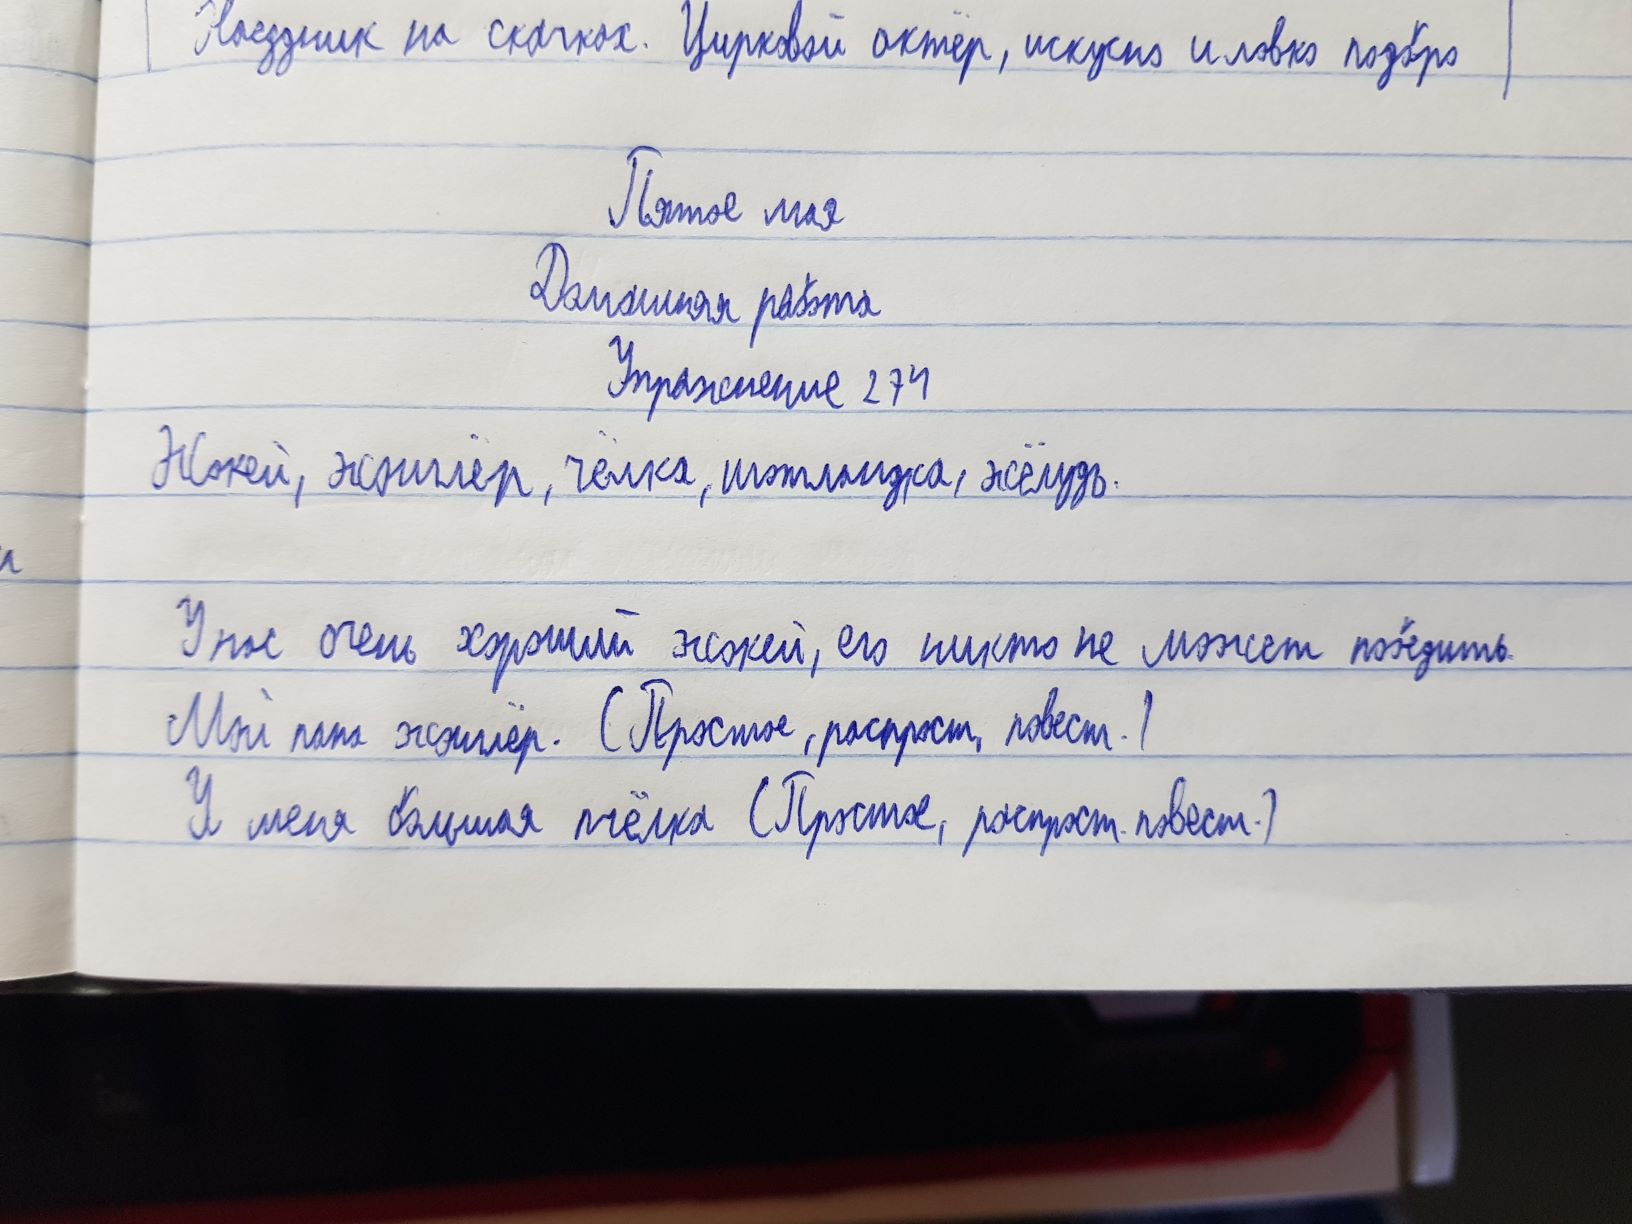 Наездник на скачках. Цирковой актёр, искусно и ловко подбро
Пятое мая
Домашняя работа
Упражнение 274
Жокей, жонглёр, чёлка, шотландка, жёлудь.
У нас очень хороший жокей, его никто не может победить.
Мой папа жонглёр. (Простое, распрост, повест.)
У меня большая пчёлка (Простое, распрост. повест.)